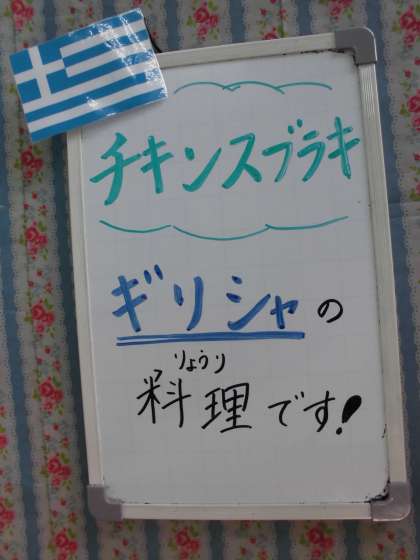 チキンスブラキ
ギリシャの
りょうり
料理です!